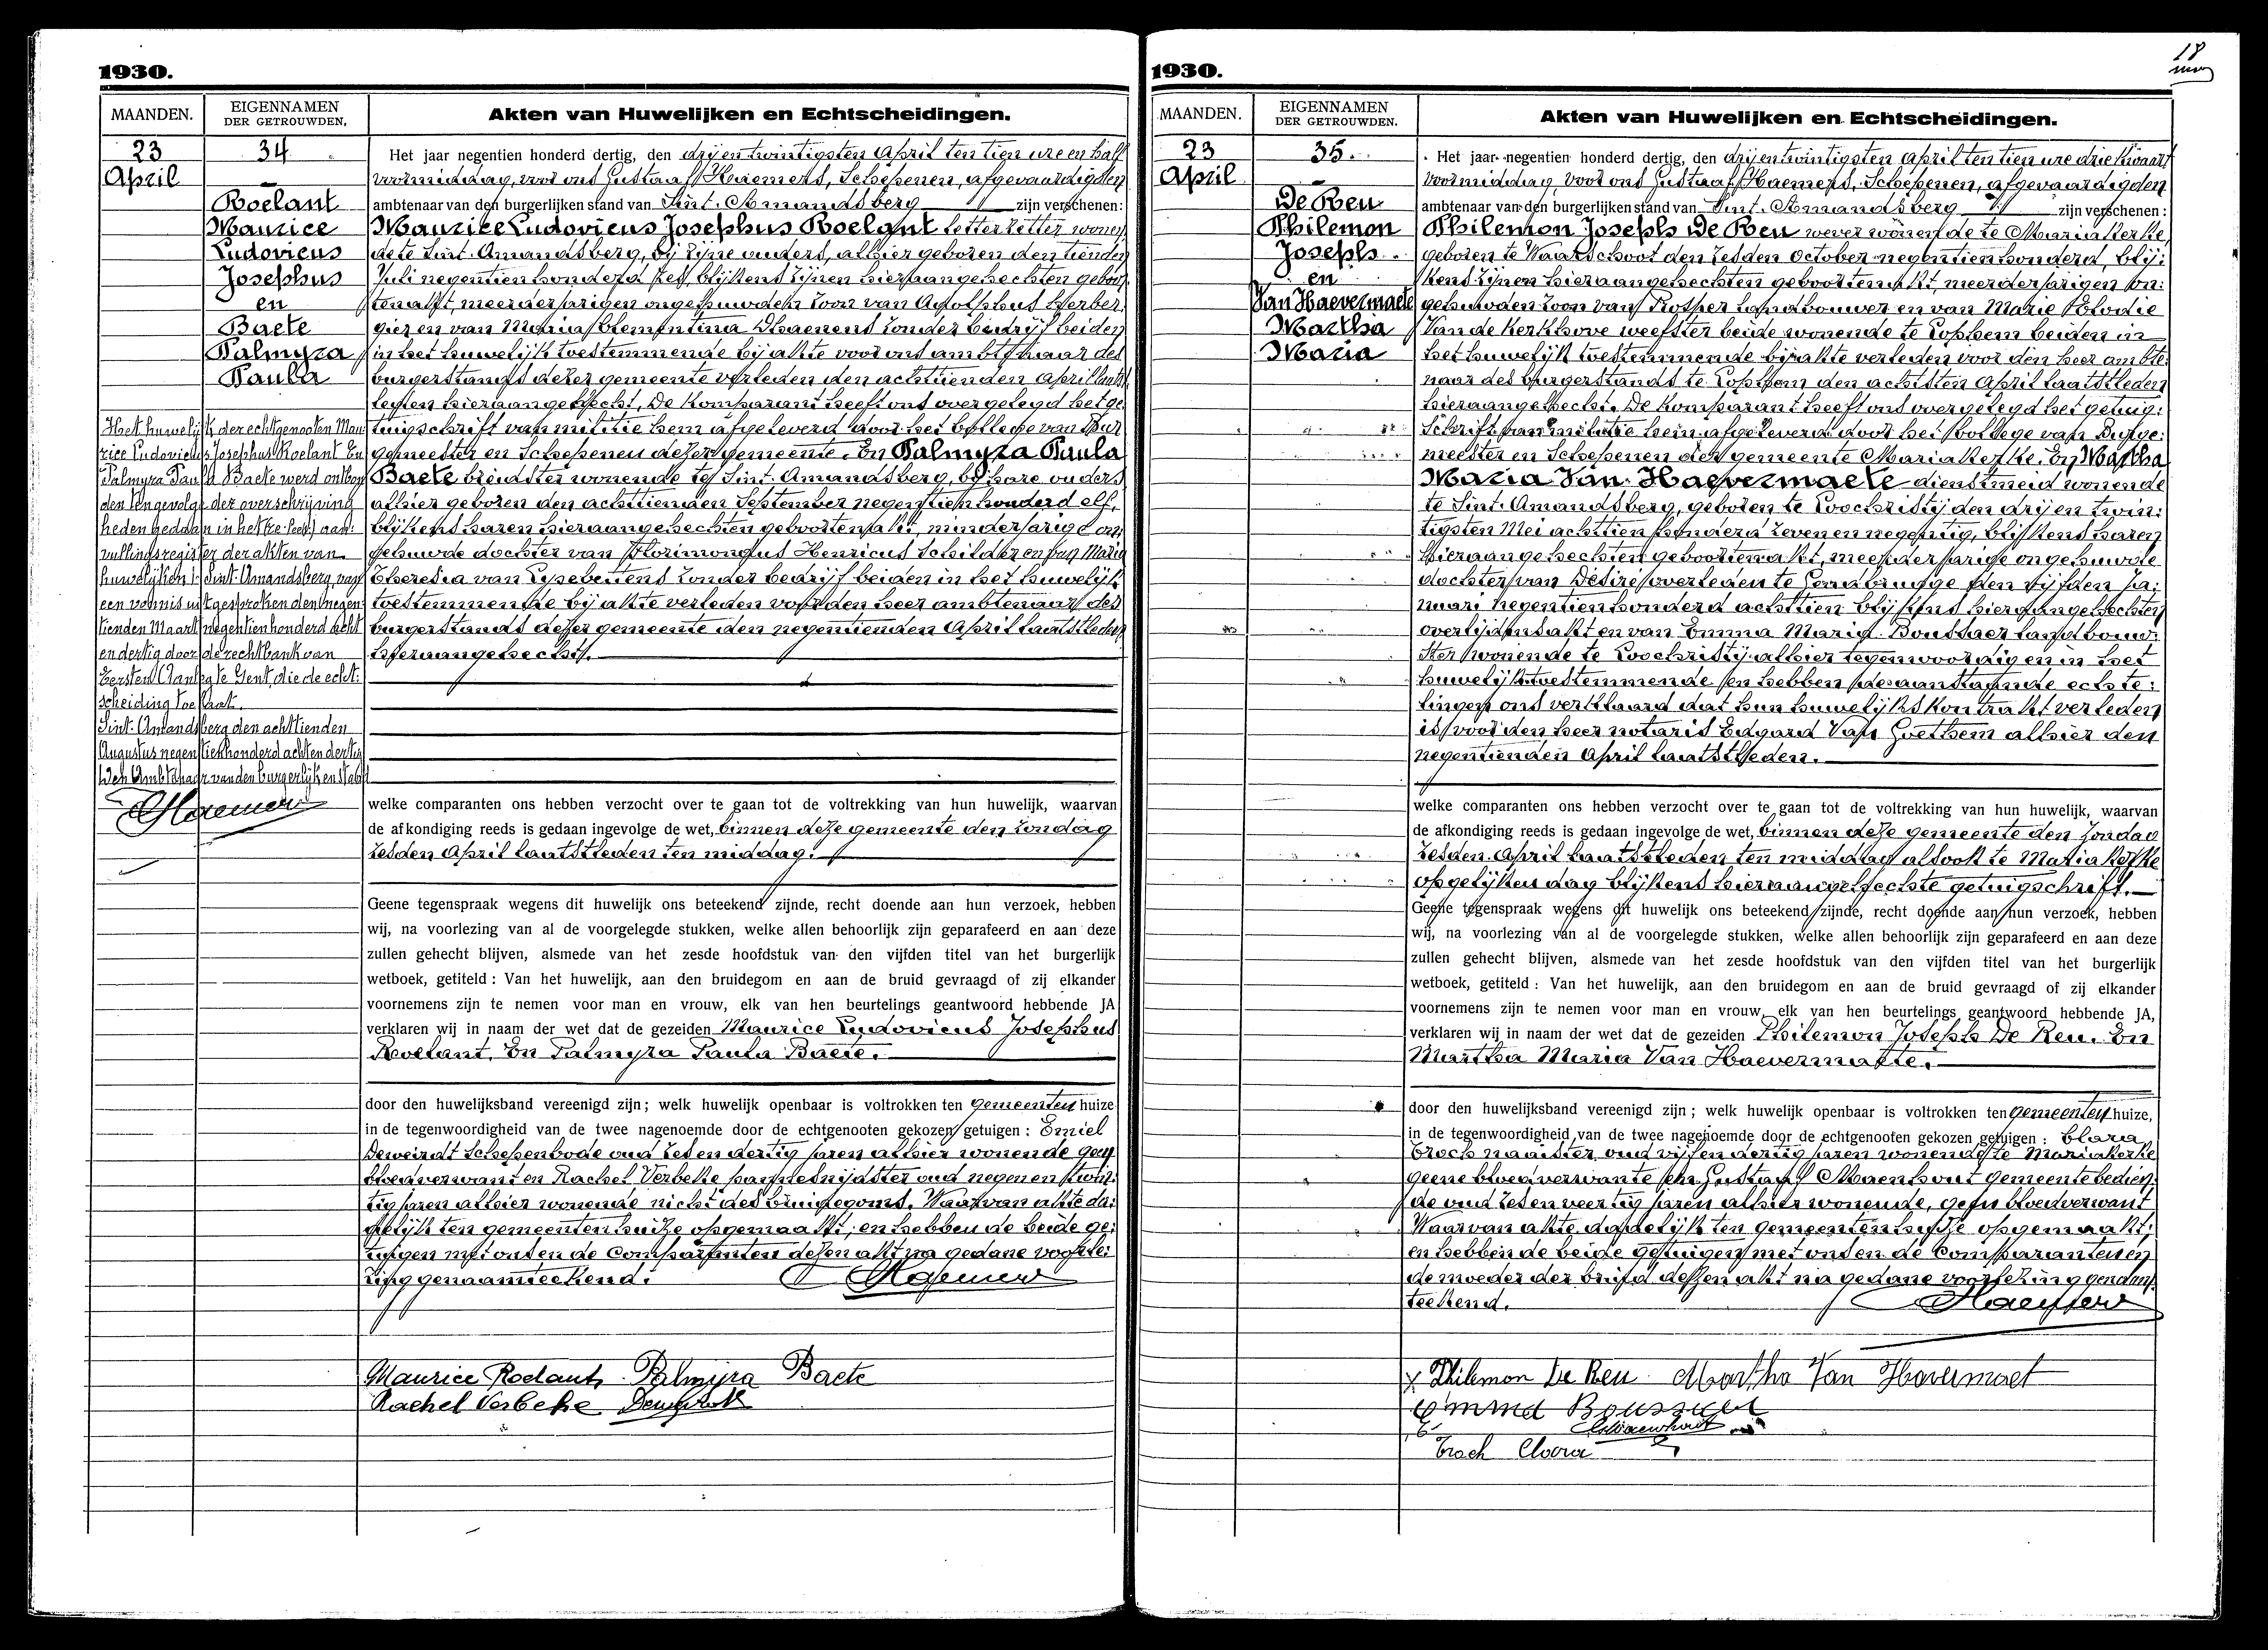 1930.
MAANDEN.
EIGENNAMEN
DER GETROUWDEN.
Akten van Huwelijken en Echtscheidingen.
23
April
34
Roelant
Maurice
Ludovicus
Josephus
en
Baete
Palmyra
Paula
Het huwelijk der echtgenooten Mau
rice Ludovicus Josephus Roelant En
Palmyra Paula Baete werd ontbon
den tengevolge der overschrijving
heden gedaan in het 1e (een) aan:
vullingsregister der akten van
huwelijken Sint-Amandsberg, van
een vonnis uitgesproken den negen:
tienden Maart negentienhonderd acht
en dertig door de rechtbank van
Eersten Aanleg te Gent, die de echt:
scheiding toestaat.
Sint-Amandsberg den achttienden
Augustus negentienhonderd achtendertig
Den Ambtenaar van den burgerlijken stand
Haemers
Het jaar negentien honderd dertig, den drijentwintigsten April ten tien ure en half
voormiddag, voor ons Gustaaf Haemers, Schepenen, afgevaardigden
ambtenaar van den burgerlijken stand van Sint-Amandsberg zijn verschenen:
Maurice Ludovicus Josephus Roelant letterzetter wonen
de te Sint-Amandsberg, bij zijne ouders, alhier geboren den tienden
Juli negentienhonderd zes, blijkens zijnen hieraangehechten geboor
tenakt, meerderjarigen ongehuwden zoon van Adolphus herber
gier en van Maria Clementina Dhaenens zonder bedrijf beiden
in het huwelijk toestemmende bij akte voor ons ambtenaar des
burgerstands dezer gemeente verleden den achttienden April laatst
leden hieraangehecht. De komparant heeft ons overgelegd het ge
tuigschrift van militie hem afgeleverd door het College van Bur
gemeester en Schepenen dezer gemeente. En Palmyra Paula
Baete breidster wonende te Sint-Amandsberg, bij hare ouders
alhier geboren den achttienden September negentienhonderd elf,
blijkens haren hieraangehechten geboortenakt, minderjarige on:
gehuwde dochter van Florimondus Henricus schilder en van Maria
Theresia van Eysebettens zonder bedrijf beiden in het huwelijk
toestemmende bij akte verleden voor den heer ambtenaar des
burgerstands dezer gemeente den negentienden April laatstleden
hieraangehecht.
welke comparanten ons hebben verzocht over te gaan tot de voltrekking van hun huwelijk, waarvan
de afkondiging reeds is gedaan ingevolge de wet, binnen deze gemeente den zondag
zesden April laatstleden ten middag.
Geene tegenspraak wegens dit huwelijk ons beteekend zijnde, recht doende aan hun verzoek, hebben
wij, na voorlezing van al de voorgelegde stukken, welke allen behoorlijk zijn geparafeerd en aan deze
zullen gehecht blijven, alsmede van het zesde hoofdstuk van den vijfden titel van het burgerlijk
wetboek, getiteld : Van het huwelijk, aan den bruidegom en aan de bruid gevraagd of zij elkander
voornemens zijn te nemen voor man en vrouw, elk van hen beurtelings geantwoord hebbende JA
verklaren wij in naam der wet dat de gezeiden Maurice Ludovicus Josephus
Roelant. En Palmyra Paula Baete.
door den huwelijksband vereenigd zijn ; welk huwelijk openbaar is voltrokken ten gemeenten huize
in de tegenwoordigheid van de twee nagenoemde door de echtgenooten gekozen getuigen : Emiel
Deweirdt Schepenbode oud zes en dertig jaren alhier wonende geen
bloedverwant en Rachel Verbeke pannesnijdster oud negen en twin:
tig jaren alhier wonende nicht des bruidegoms. Waarvan akte da:
delijk ten gemeenten huize opgemaakt; en hebben de beide ge:
tuigen met ons en de Comparanten dezen akt na gedane voorle:
zing genaamteekend.
Haemers
Maurice Roelant Palmyra Baete
Rachel Verbeke Deweirdt
1930.
18
MAANDEN.
EIGENNAMEN
DER GETROUWDEN.
Akten van Huwelijken en Echtscheidingen.
23
April
35.
De Reu
Philemon
Joseph
en
Van Haevermaete
Martha
Maria
Het jaar negentien honderd dertig, den drijentwintigsten April ten tien ure drie kwaart
voormiddag, voor ons Gustaaf Haemers, Schepenen, afgevaardigden
ambtenaar van den burgerlijken stand van Sint-Amandsberg zijn verschenen :
Philemon Joseph De Reu wever wonende te Mariakerke,
geboren te Waarschoot den zesden October negentienhonderd, blij:
kens zijnen hieraangehechten geboortenakt, meerderjarigen on:
gehuwden zoon van Prosper landbouwer en van Marie Elodie
Van de Kerkhove weefster beide wonende te Lophem beiden in
het huwelijk toestemmende bij akte verleden voor den heer ambte:
naar des burgerstands te Lophem den achtsten April laatstleden
hieraangehecht. De komparant heeft ons overgelegd het getuig:
schrift van militie hem afgeleverd door het College van Burge:
meester en Schepenen der gemeente Mariakerke. En Martha
Maria Van Haevermaete dienstmeid wonende
te Sint-Amandsberg, geboren te Loochristij den drijen twin:
tigsten Mei achttien honderd zevenennegentig, blijkens haren
hieraangehechten geboortenakt, meerderjarige ongehuwde
dochter van Désiré overleden te Gendbrugge den vijfden Ja:
nuari negentienhonderd achttien blijkens hieraangehechten
overlijdensakt en van Emma Maria Boussaer landbouw:
ster wonende te Loochristij alhier tegenwoordig en in het
huwelijk toestemmende en hebben de aanstaande echte:
lingen ons verklaard dat hun huwelijkskontrakt verleden
is voor den heer notaris Edgard Van Goethem alhier den
negentienden April laatstleden.
welke comparanten ons hebben verzocht over te gaan tot de voltrekking van hun huwelijk, waarvan
de afkondiging reeds is gedaan ingevolge de wet, binnen deze gemeente den zondag
zesden April laatstleden ten middag alsook te Mariakerke
op gelijken dag blijkens hieraangehechte getuigschrift.
Geene tegenspraak wegens dit huwelijk ons beteekend zijnde, recht doende aan hun verzoek, hebben
wij, na voorlezing van al de voorgelegde stukken, welke allen behoorlijk zijn geparafeerd en aan deze
zullen gehecht blijven, alsmede van het zesde hoofdstuk van den vijfden titel van het burgerlijk
wetboek, getiteld : Van het huwelijk, aan den bruidegom en aan de bruid gevraagd of zij elkander
voornemens zijn te nemen voor man en vrouw, elk van hen beurtelings geantwoord hebbende JA,
verklaren wij in naam der wet dat de gezeiden Philemon Joseph De Reu. En
Martha Maria Van Haevermaete.
door den huwelijksband vereenigd zijn ; welk huwelijk openbaar is voltrokken ten gemeenten huize,
in de tegenwoordigheid van de twee nagenoemde door de echtgenooten gekozen getuigen : Clara
Troch naaister oud vijf en dertig jaren wonende te Mariakerke
geene bloedverwante en Gustaaf Maenhout gemeentebedien:
de oud zes en veertig jaren alhier wonende, geen bloedverwant
Waarvan akte dadelijk ten gemeenten huize opgemaakt;
en hebben de beide getuigen met ons en de Comparanten en
de moeder der bruid dezen akt na gedane voorlezing genaam:
teekend.
Haemers
Philemon De Reu Martha Van Havermaet
Emma Boussaer
G. Maenhout
Troch Clara